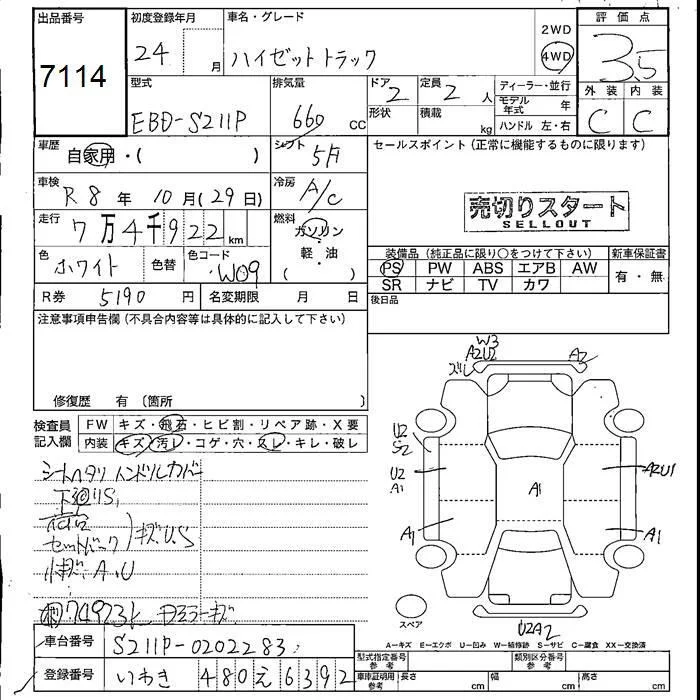 出品番号
7114
初度登録年月
24 月
車名・グレード
ハイゼットトラック
2WD
4WD
評価点
3.5
外装 内装
C C
型式
EBD-S211P
排気量
660 cc
ドア 2
形状
定員 2 人
積載 kg
ディーラー・並行
モデル年式 年
ハンドル 左・右
車歴
自家用・( )
シフト 5F
セールスポイント(正常に機能するものに限ります)
売切りスタート
SELLOUT
車検
R 8 年 10 月(29日)
冷房 A/C
走行
7万4千922 km
燃料
ガソリン
軽・油
( )
色 ホワイト
色替
色コード W09
R券 5190 円
名変期限 月 日
装備品(純正品に限り○をつけて下さい)
新車保証書
PS PW ABS エアB AW
SR ナビ TV カワ
有・無
後日品
注意事項申告欄(不具合内容等は具体的に記入して下さい)
修復歴 有(箇所 )
検査員記入欄
FW キズ・飛石・ヒビ割・リペア跡・X要
内装 キズ・汚レ・コゲ・穴・スレ・キレ・破レ
シートヘタリ ハンドルカバー
下廻りS,
セットバック
キズU.S
小キズ A.U
74923k
キズ
W3
A2U2
ズレ
A2
U2
S2
U2
A1
A1
A1
A2U1
A1
スペア
U2A2
A-キズ E-エクボ U-凹み W-補修跡 S-サビ C-腐食 XX-交換済
車台番号 S211P-0202283
登録番号 いわき 480 え 6392
型式指定番号 参考
類別区分番号 参考
車庫証明用 参考
長さ cm
幅 cm
高さ cm